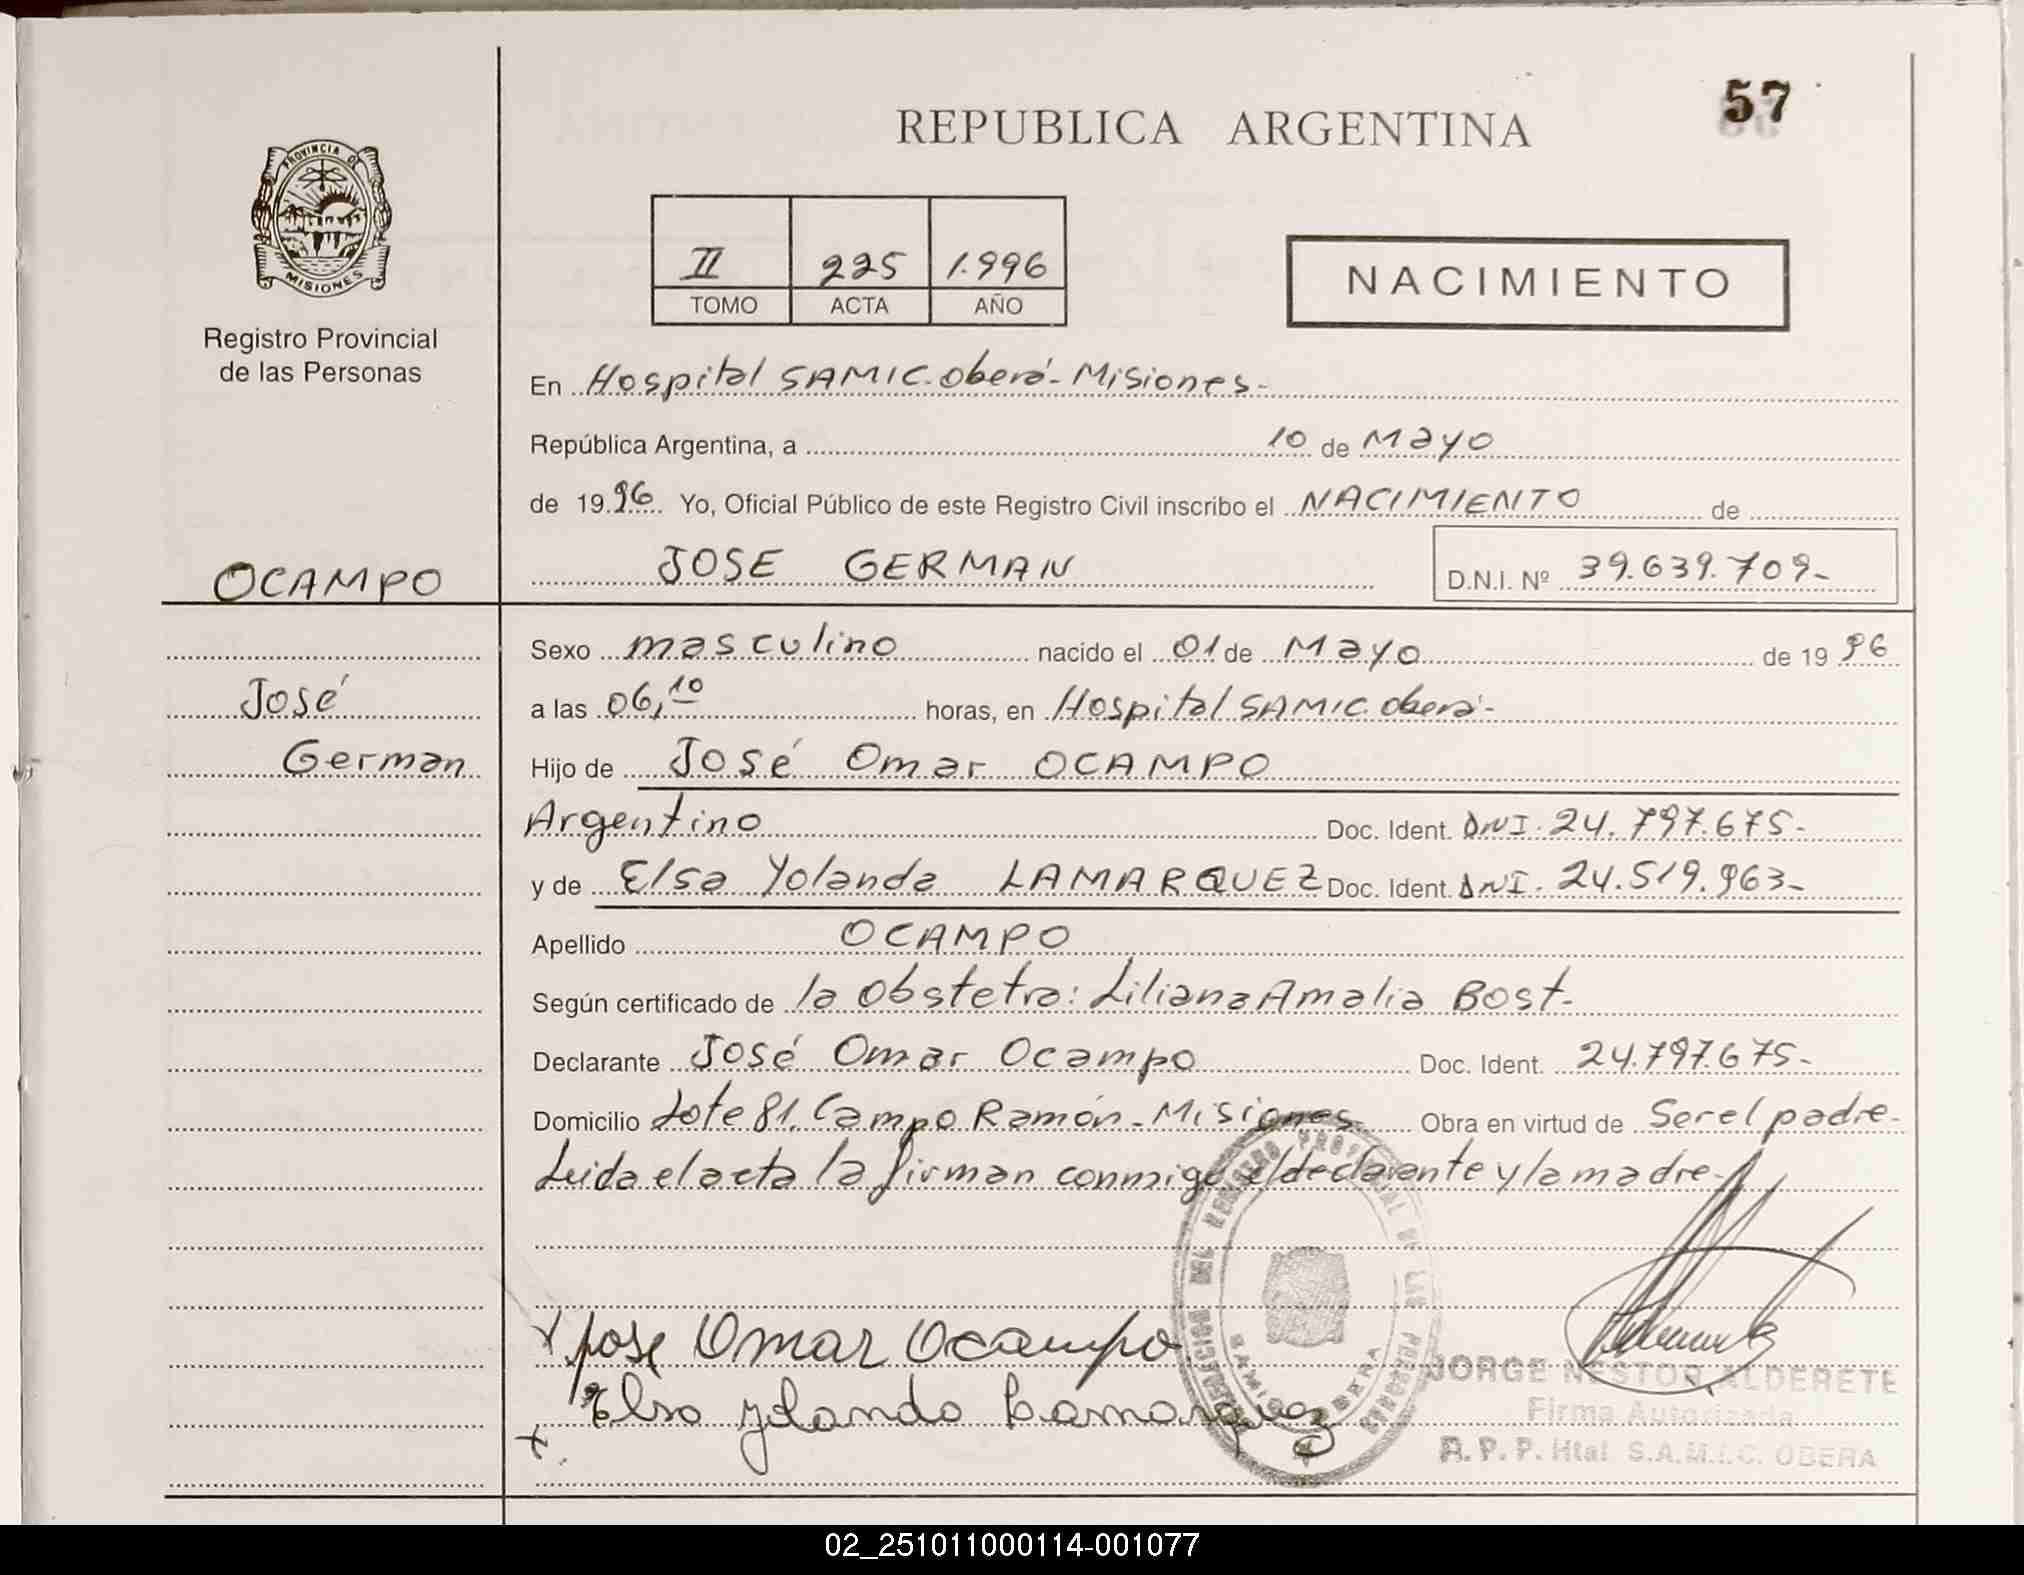 57
REPUBLICA ARGENTINA
PROVINCIA DE
MISIONES
Registro Provincial
de las Personas
II 225 1.996
TOMO ACTA AÑO
NACIMIENTO
En Hospital SAMIC. Oberá - Misiones -
República Argentina, a 10 de Mayo
de 1996. Yo, Oficial Público de este Registro Civil inscribo el NACIMIENTO de
OCAMPO
JOSE GERMAN D.N.I. Nº 39.639.709-
José
German
Sexo masculino nacido el 01 de Mayo de 19 96
a las 06,10 horas, en Hospital SAMIC. Oberá -
Hijo de José Omar OCAMPO
Argentino Doc. Ident. DNI. 24.797.675-
y de Elsa Yolanda LAMARQUEZ Doc. Ident. DNI. 24.519.963-
Apellido OCAMPO
Según certificado de la Obstetra: Liliana Amalia Bost -
Declarante José Omar Ocampo Doc. Ident. 24.797.675-
Domicilio Lote 81. Campo Ramón - Misiones Obra en virtud de Ser el padre -
Leida el acta la firman conmigo el declarante y la madre -
Jose Omar Ocampo
Elsa Yolanda Lamarquez
REGISTRO PROVINCIAL DE LAS PERSONAS
DEL
SAMIC OBERA
JORGE NESTOR ALDERETE
Firma Autorizada
A. P. P. Htal S.A.M.I.C. OBERA
02_251011000114-001077